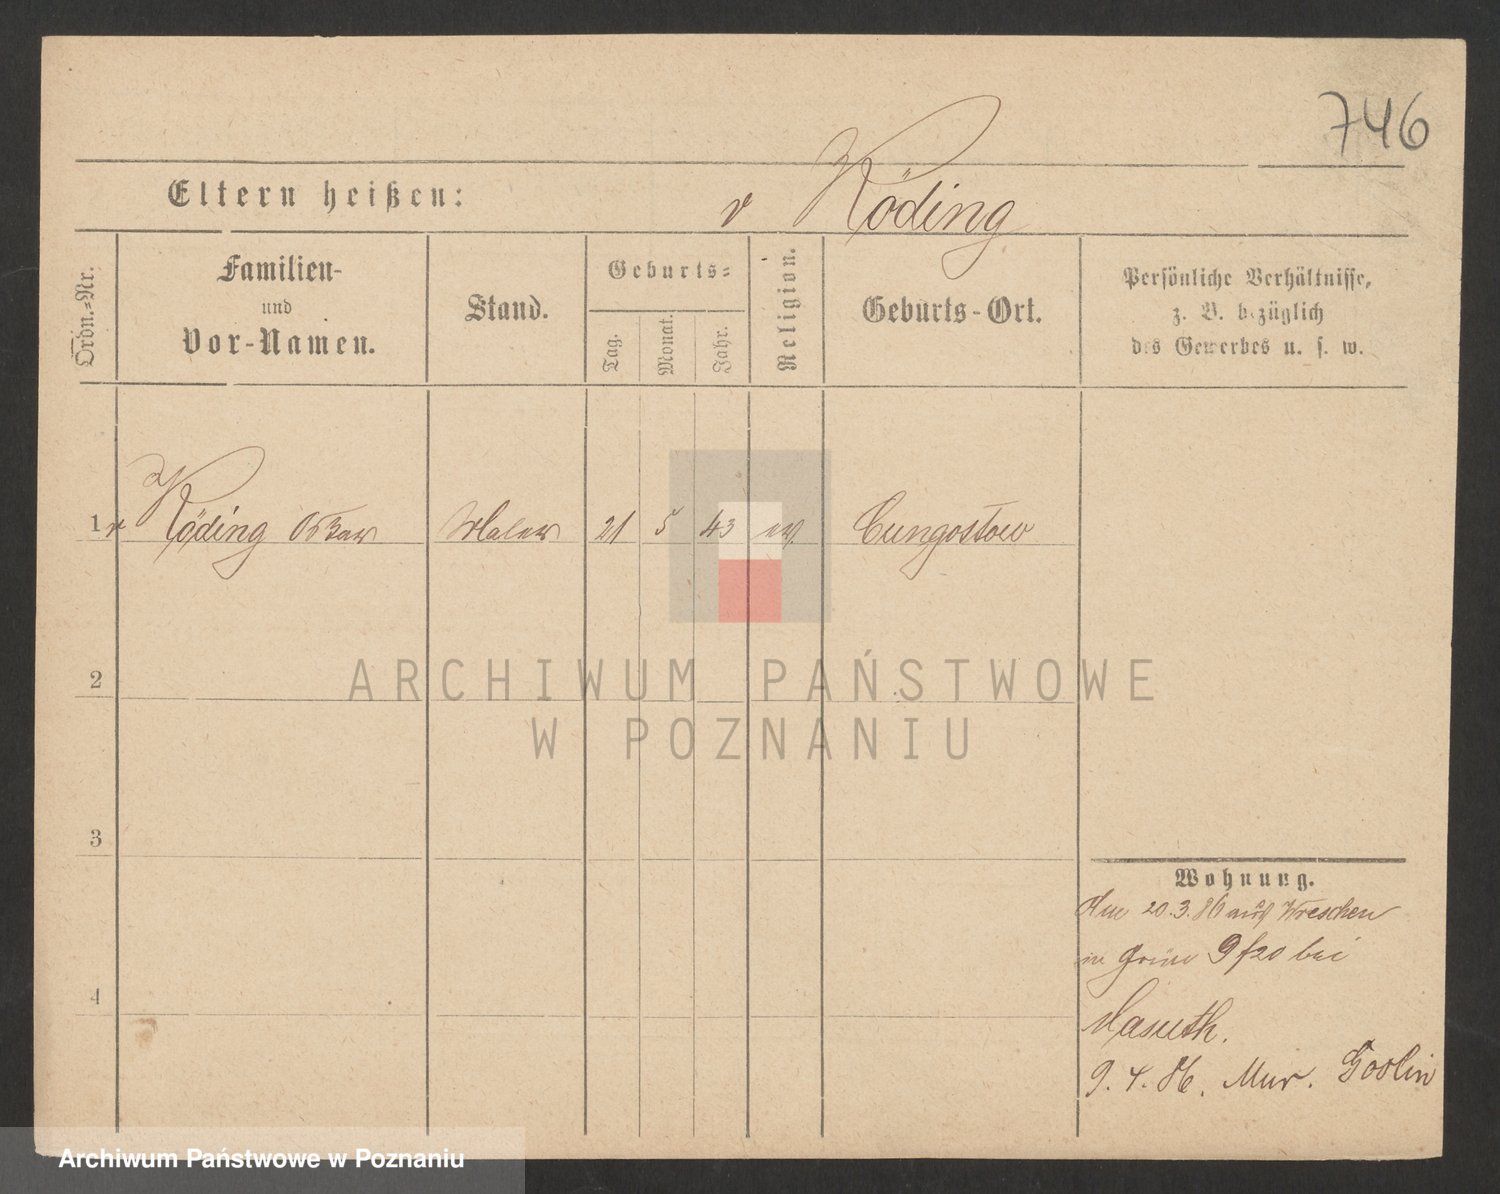 746
Eltern heißen:
v Köding
Ordn.-Nr.
Familien-
und
Vor-Namen.
Stand.
Geburts-
Tag.
Monat.
Jahr.
Religion.
Geburts-Ort.
Persönliche Verhältnisse,
z. B. bezüglich
des Gewerbes u. s. w.
1 v Köding Oskar Maler 21 5 43 ev. Cungostow
2
3
4
Wohnung.
20.3.86 aus Wreschen
in 9/20 bei
Masuth.
9. 4. 86. Mur. Goslin
ARCHIWUM PAŃSTWOWE
W POZNANIU
Archiwum Państwowe w Poznaniu